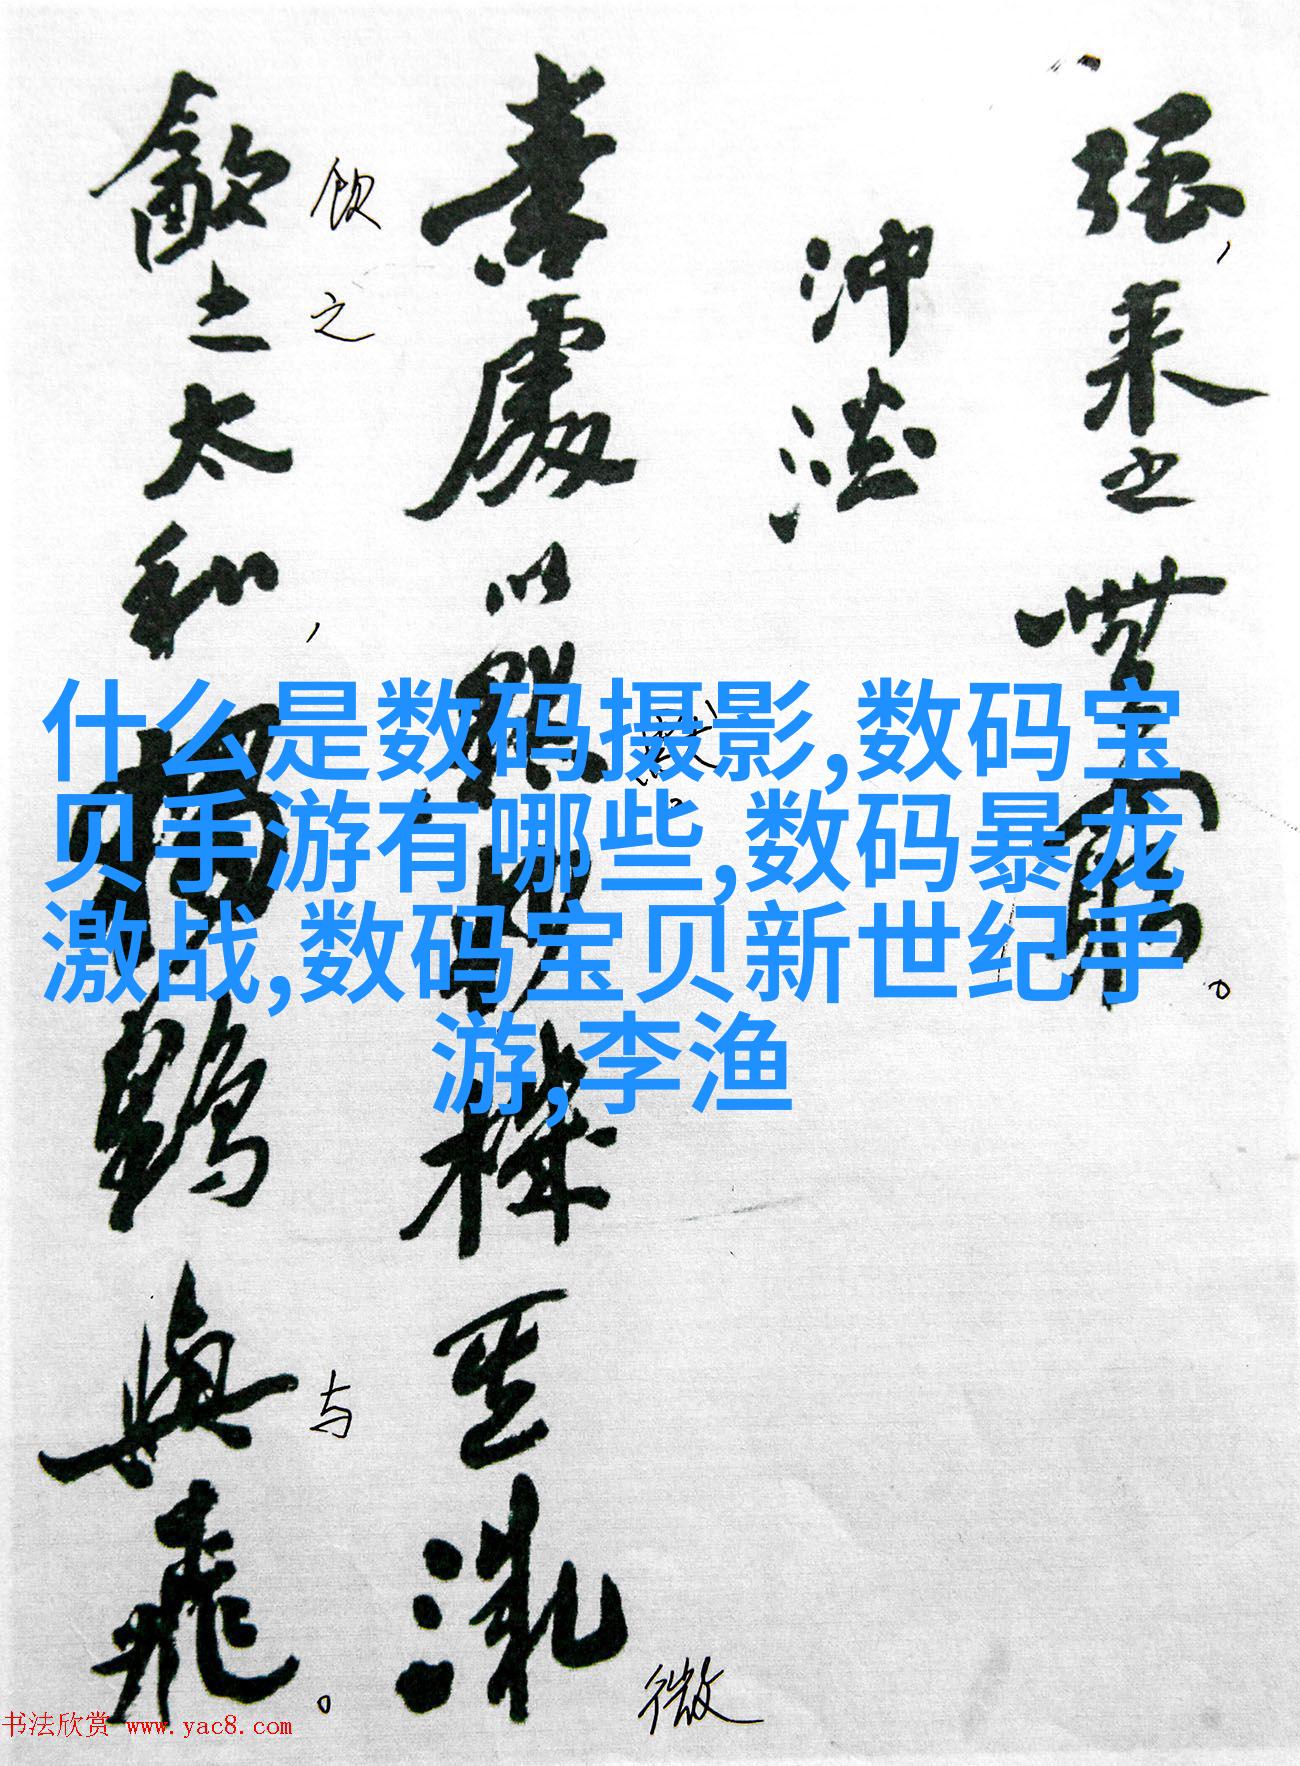 强,来之無窮。
沖澹
素處以默妙機其微
微
飲之太和,獨鶴與飛。
饮
之
与
什么是数码摄影,数码宝
贝手游有哪些,数码暴龙
激战,数码宝贝新世纪手
游,李渔
书法欣赏 www.yac8.com